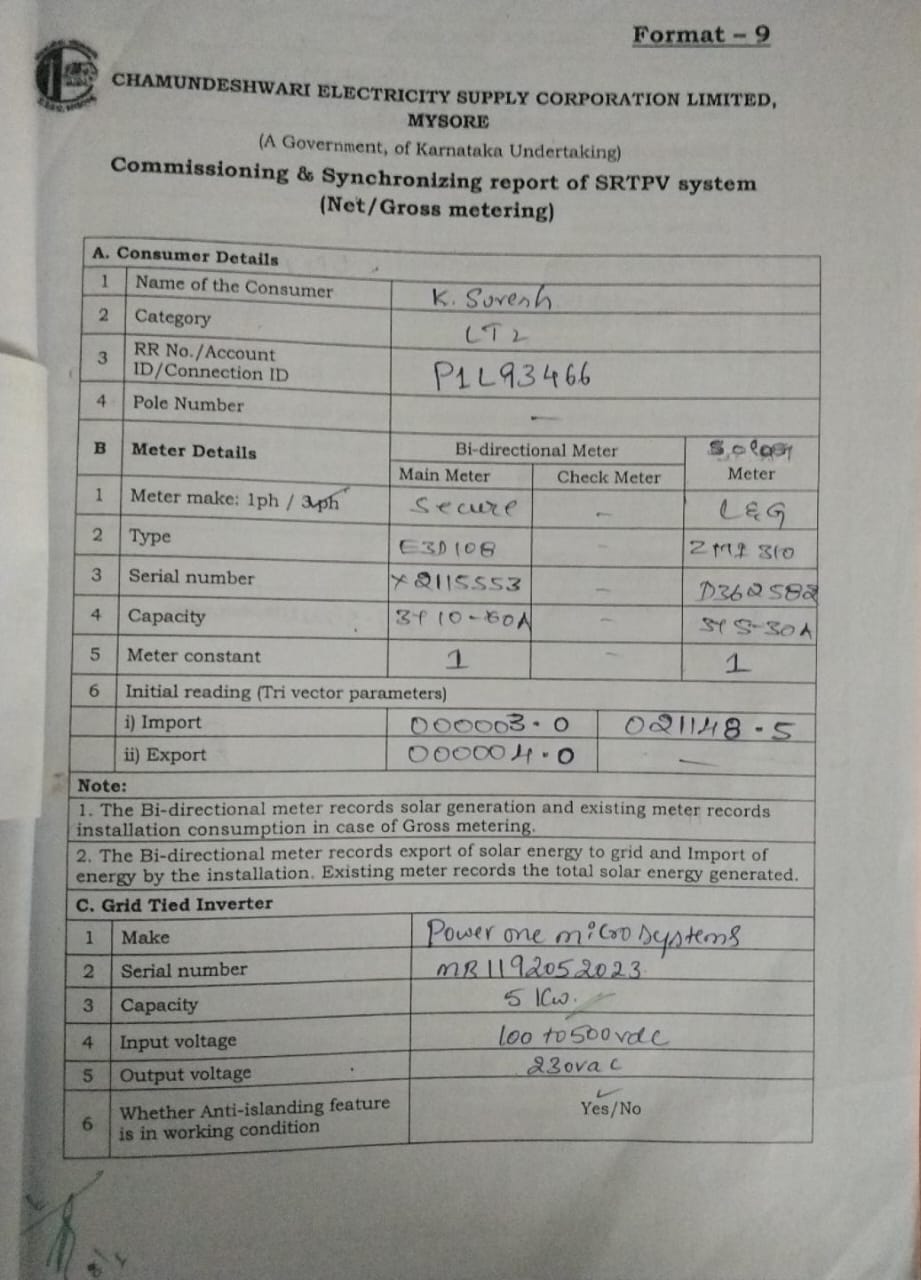 Format – 9
CHAMUNDESHWARI ELECTRICITY SUPPLY CORPORATION LIMITED,
MYSORE
(A Government, of Karnataka Undertaking)
Commissioning & Synchronizing report of SRTPV system
(Net/Gross metering)
A. Consumer Details
1 Name of the Consumer K. Suresh
2 Category LT2
3 RR No./Account
ID/Connection ID P1L93466
4 Pole Number —
B Meter Details Bi-directional Meter Solar
Main Meter Check Meter Meter
1 Meter make: 1ph / 3ph Secure – L&G
2 Type E3D108 –
3 Serial number X2115553 – D362582
4 Capacity 10-60A – 5-30A
5 Meter constant 1 – 1
6 Initial reading (Tri vector parameters)
i) Import 000003.0 021148.5
ii) Export 000004.0 —
Note:
1. The Bi-directional meter records solar generation and existing meter records
installation consumption in case of Gross metering.
2. The Bi-directional meter records export of solar energy to grid and Import of
energy by the installation. Existing meter records the total solar energy generated.
C. Grid Tied Inverter
1 Make Power one micro systems
2 Serial number MR1192052023
3 Capacity 5 Kw.
4 Input voltage 100 to 500 vdc
5 Output voltage 230vac
6 Whether Anti-islanding feature
is in working condition Yes/No